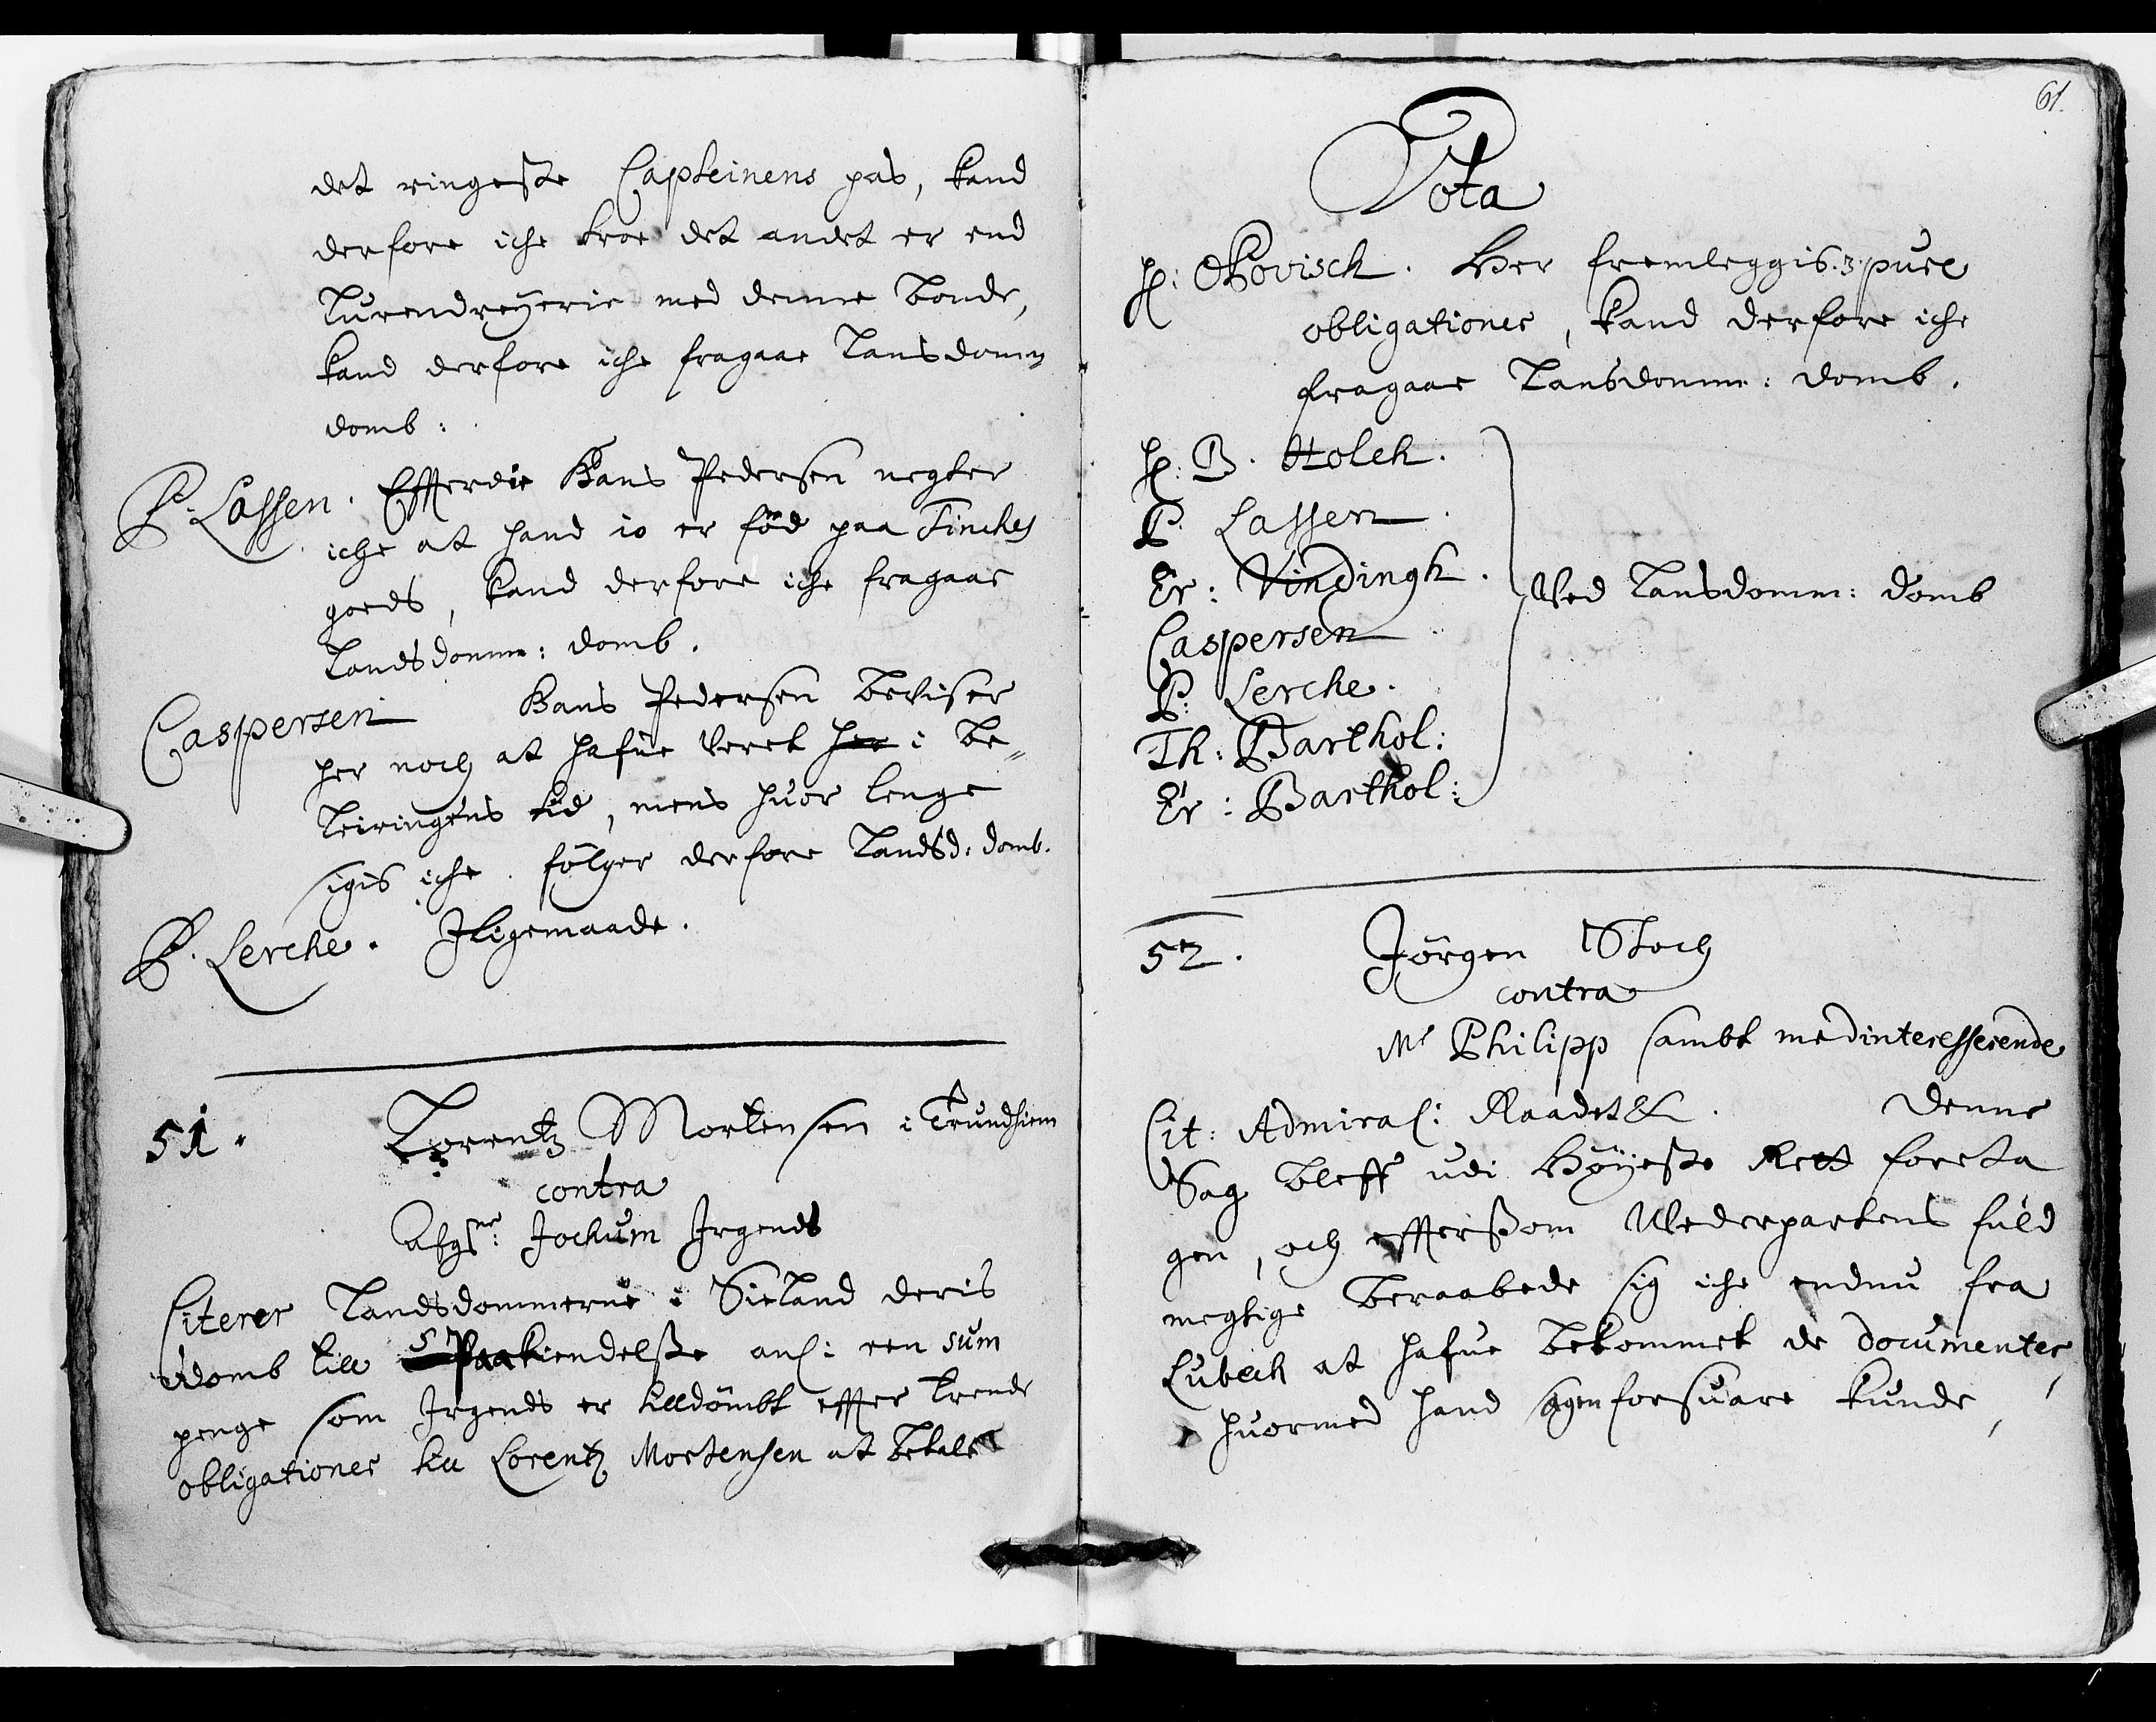 det ringeste Capteinens pas, kand
derfore iche troe det andet er end
Lurendreyerie med denne bonde,
kand derfore iche fragaae Lansdomm
domb:
P. Lassen. Efterdie Hans Pedersen negter
iche at hand io er föd paa Finches
goeds, kand derfore iche fragaae
Landsdomm: domb.
Caspersen Hans Pedersen beviser
her noch at hafue veret her i be„
leiringens tid, mens huor lenge
sigis iche. fölger derfore Landsd: domb.
P. Lerche. Iligemaade.
51. Lorentz Mortensen i Trundhiem
contra
Jochum Irgends
Citerer Landsdommerne i Sieland deris
domb till Paakiendelsse anl: een sum
penge som Irgends er tilldömbt effter trende
obligationer till Lorentz Mortensen at betale
61.
Vota
H: Povisch. Her fremleggis 3 puer
obligationer, kand derfore iche
fragaae Lansdomm: domb.
H: B. Holck.
P. Lassen.
Er: Vindingh.
Ved Lansdomm: domb
Caspersen
P: Lerche.
Th: Barthol:
Er: Barthol:
52. Jörgen Stoch
contra
Mr Philipp sambt medinteresserende
Cit: Admiral: Raadet &c. Denne
Sag bleff udi Höyeste Rett foreta
gen, och efftersom Wederpartens fuld
megtige beraabede sig iche endnu fra
Lubeck at hafue bekommet de documenter,
huormed hand sagen forsuare kunde,